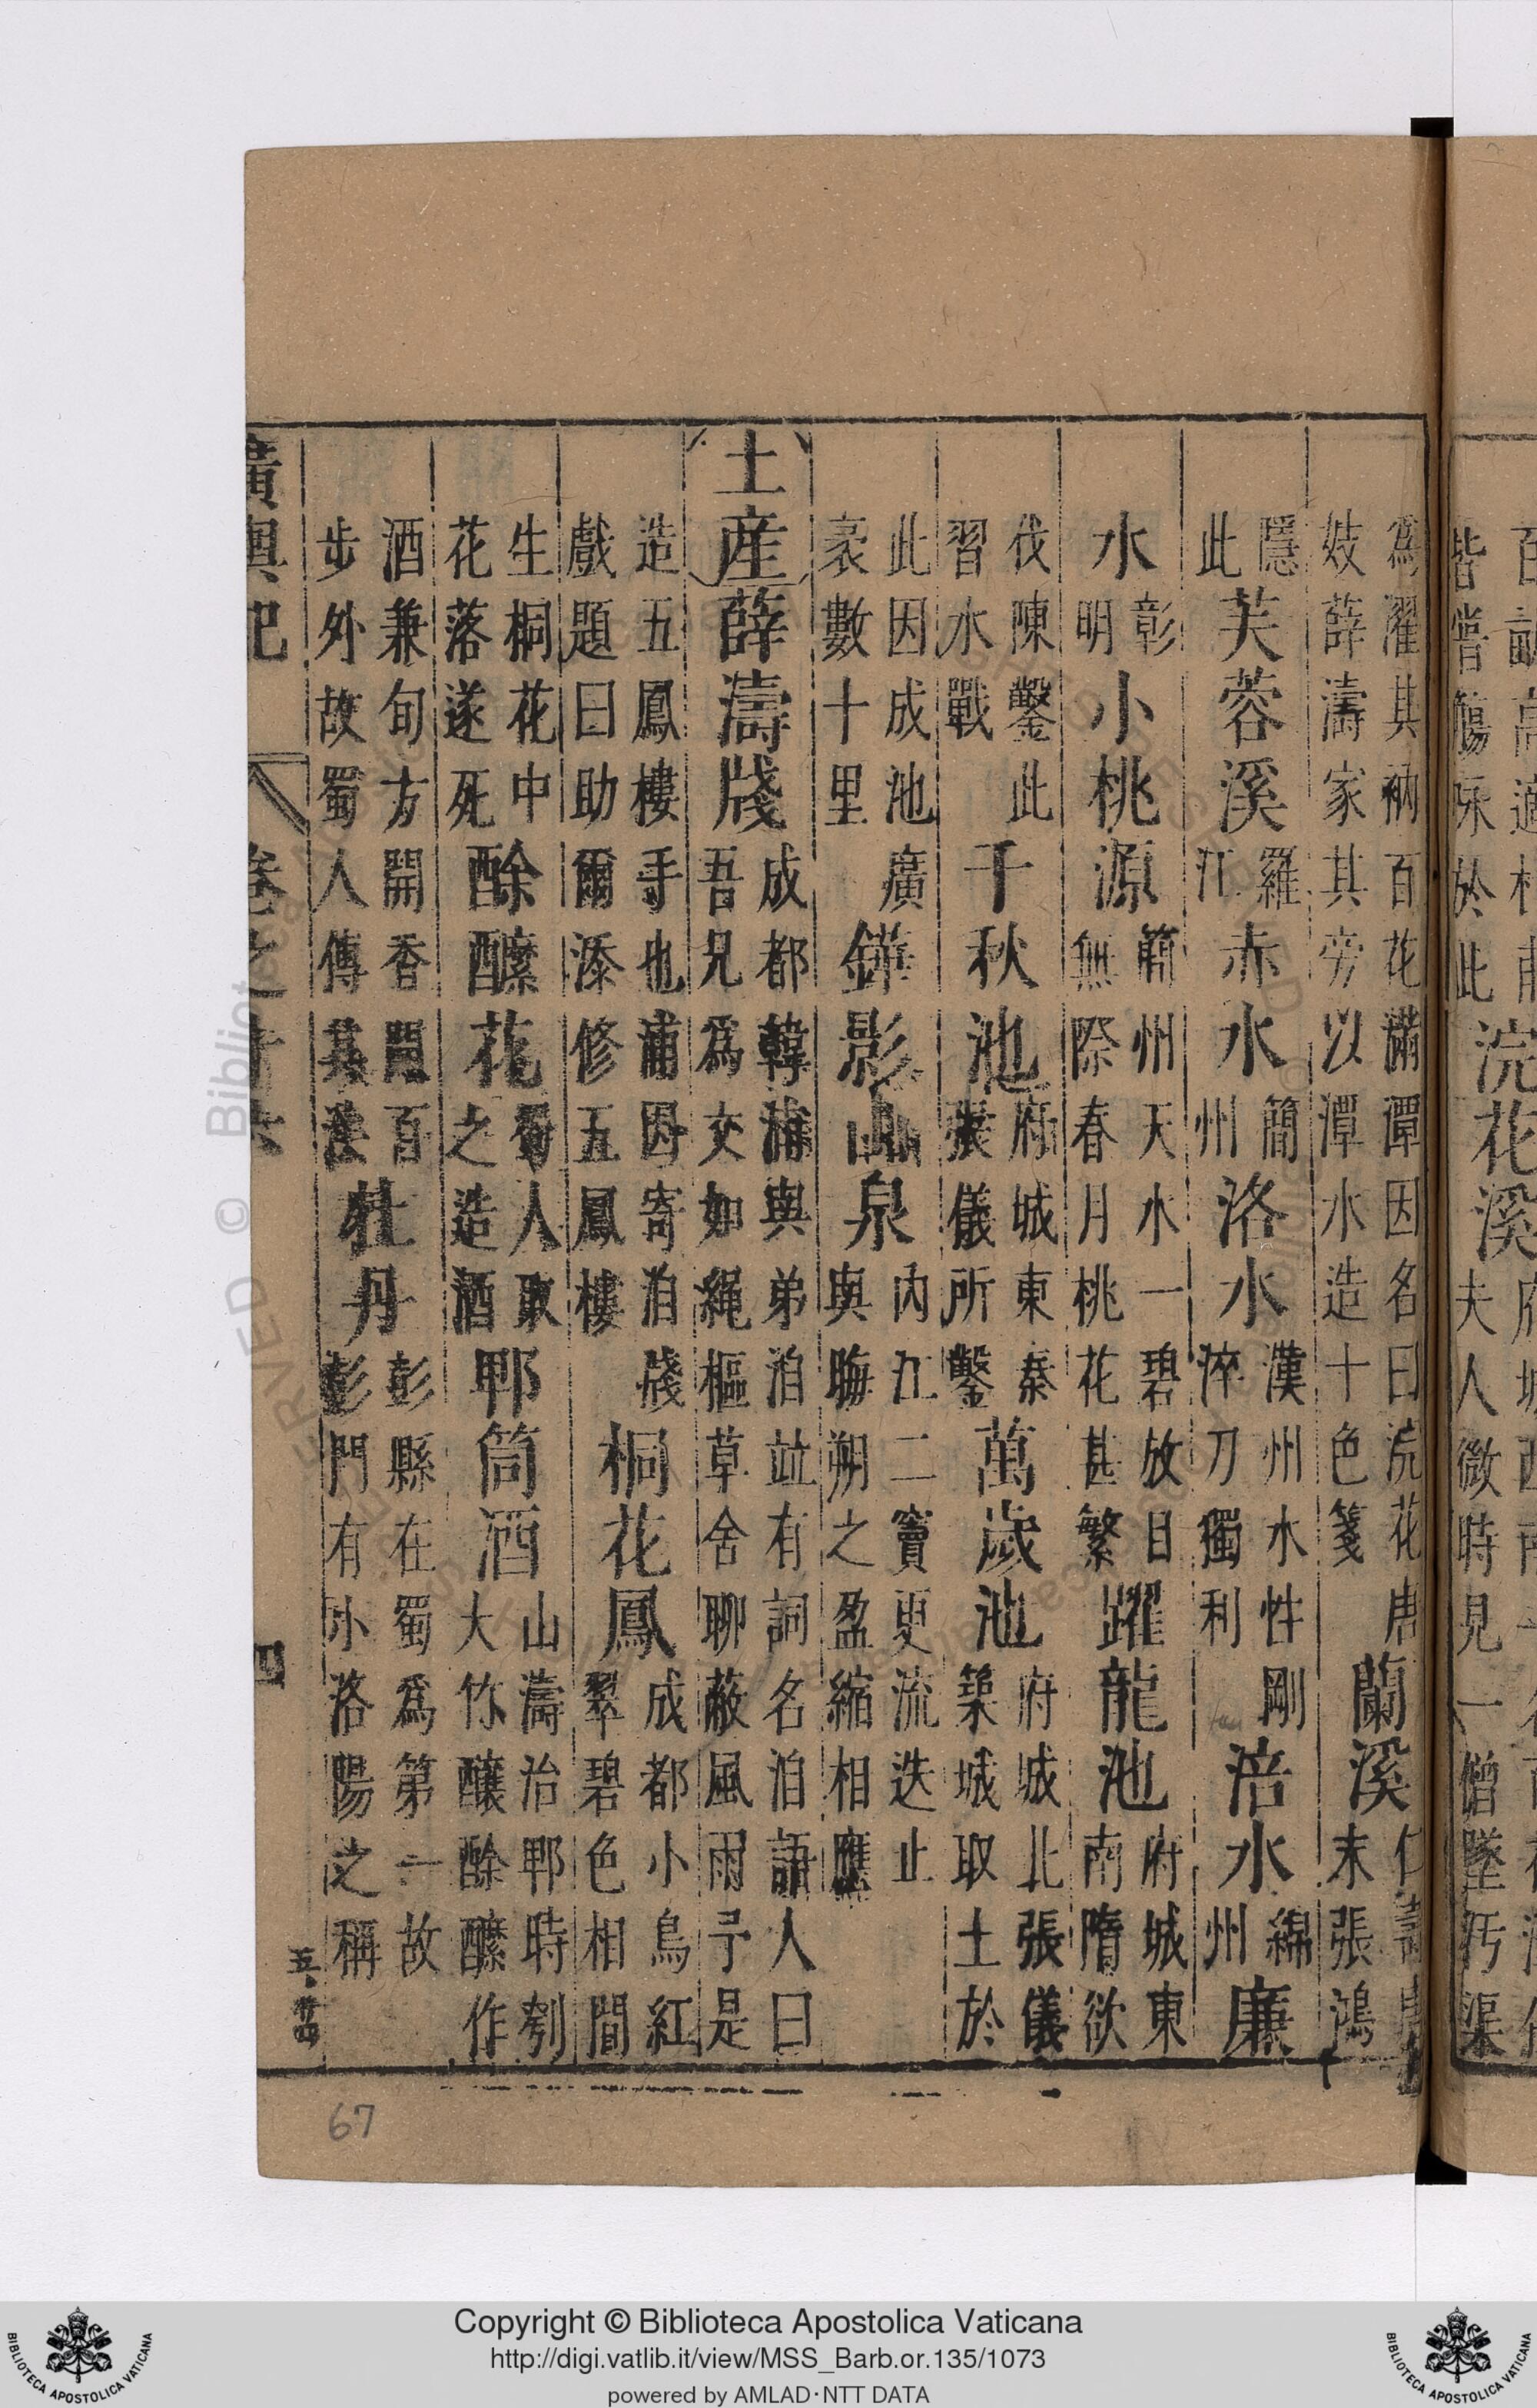 浣花溪
夫人微時見一僧墜汚渠
皆嘗觴咏於此
爲濯其衲百花滿潭因名曰浣花唐
妓薛濤家其旁以潭水造十色箋
蘭溪
仁壽
末張鴻
隱
此
芙蓉溪
羅
江
赤水
簡
州
洛水
漢州水性剛
淬刀獨利
涪水
綿
州
廉
水
彰
明
小桃源
簡州天水一碧放目
無際春月桃花甚繁
躍龍池
府城東
南隋欲
伐陳鑿此
習水戰
千秋池
府城東秦
張儀所鑿
萬歲池
府城北張儀
築城取土於
此因成池廣
袤數十里
鏵影山泉
内江二竇更流迭止
與晦朔之盈縮相應
土産
薛濤牋
成都韓浦與弟洎竝有詞名洎語人曰
吾兄爲文如繩樞草舍聊蔽風雨予是
造五鳳樓手也浦因寄洎牋
戲題曰助爾添修五鳳樓
桐花鳳
成都小鳥紅
翠碧色相間
生桐花中
花落遂死
酴醿花
蜀人取
之造酒
郫筒酒
山濤治郫時刳
大竹釀酴醿作
酒兼旬方開香聞百
步外故蜀人傳其法
牡丹
彭縣在蜀爲第一故
彭門有小洛陽之稱
廣輿記
卷之十六
四
67
Copyright © Biblioteca Apostolica Vaticana
http://digi.vatlib.it/view/MSS_Barb.or.135/1073
powered by AMLAD·NTT DATA
BIBLIOTECA APOSTOLICA VATICANA
BIBLIOTECA APOSTOLICA VATICANA